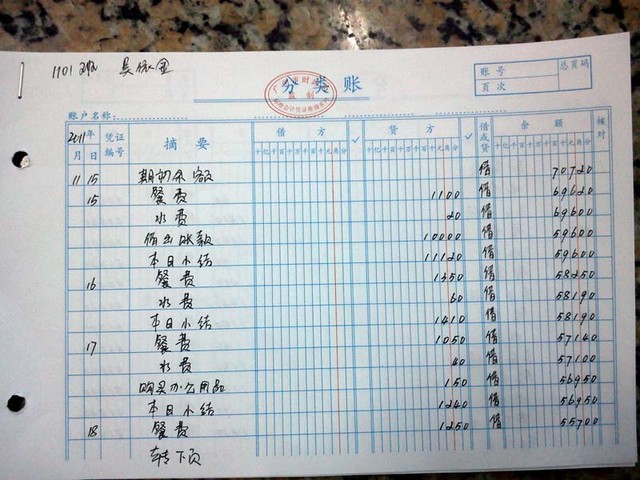 1101班 吴
分类账
账号 总页码
页次
账户名称:
2011年 凭证编号 摘要 借方 ✓ 贷方 ✓ 借或贷 余额 核对
月 日 十亿千百十万千百十元角分 十亿千百十万千百十元角分 十亿千百十万千百十元角分
11 15 期初余额 借 70720
15 餐费 1100 借 69620
水费 20 借 69600
借出账款 10000 借 59600
本日小结 11120 借 59600
16 餐费 1350 借 58250
水费 60 借 58190
本日小结 1410 借 58190
17 餐费 1050 借 57140
水费 40 借 57100
购买办公用品 150 借 56950
本日小结 1240 借 56950
18 餐费 1250 借 55700
转下页